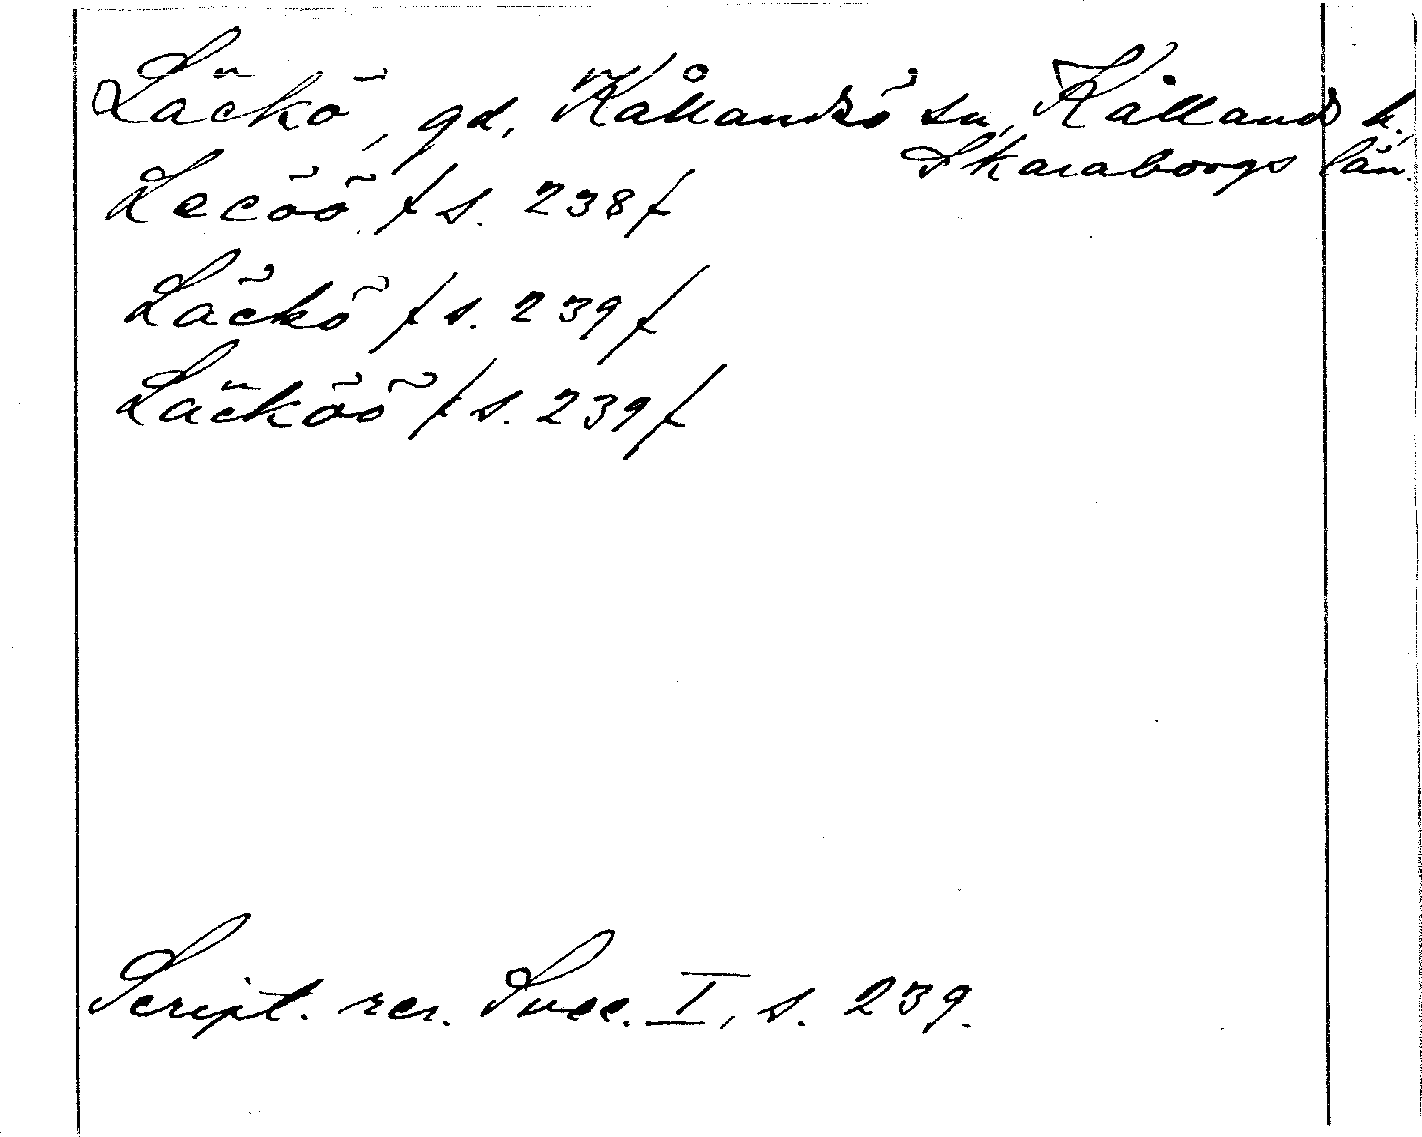 Läckö, gd, Kållandsö sn, Kållands h.,
Skaraborgs län.
Lecöö /s. 238/
Läckö /s. 239/
Läcköö /s. 239/
Script. rer. Svec. I, s. 239.